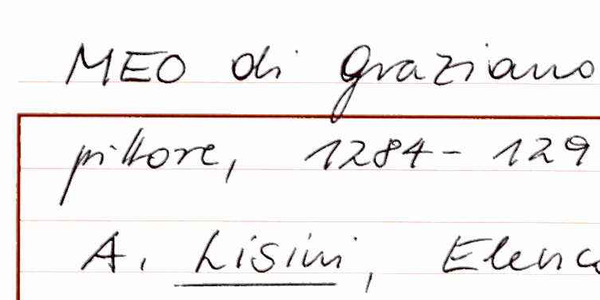 MEO di Graziano
pittore, 1284- 129
A. Lisini, Elenco